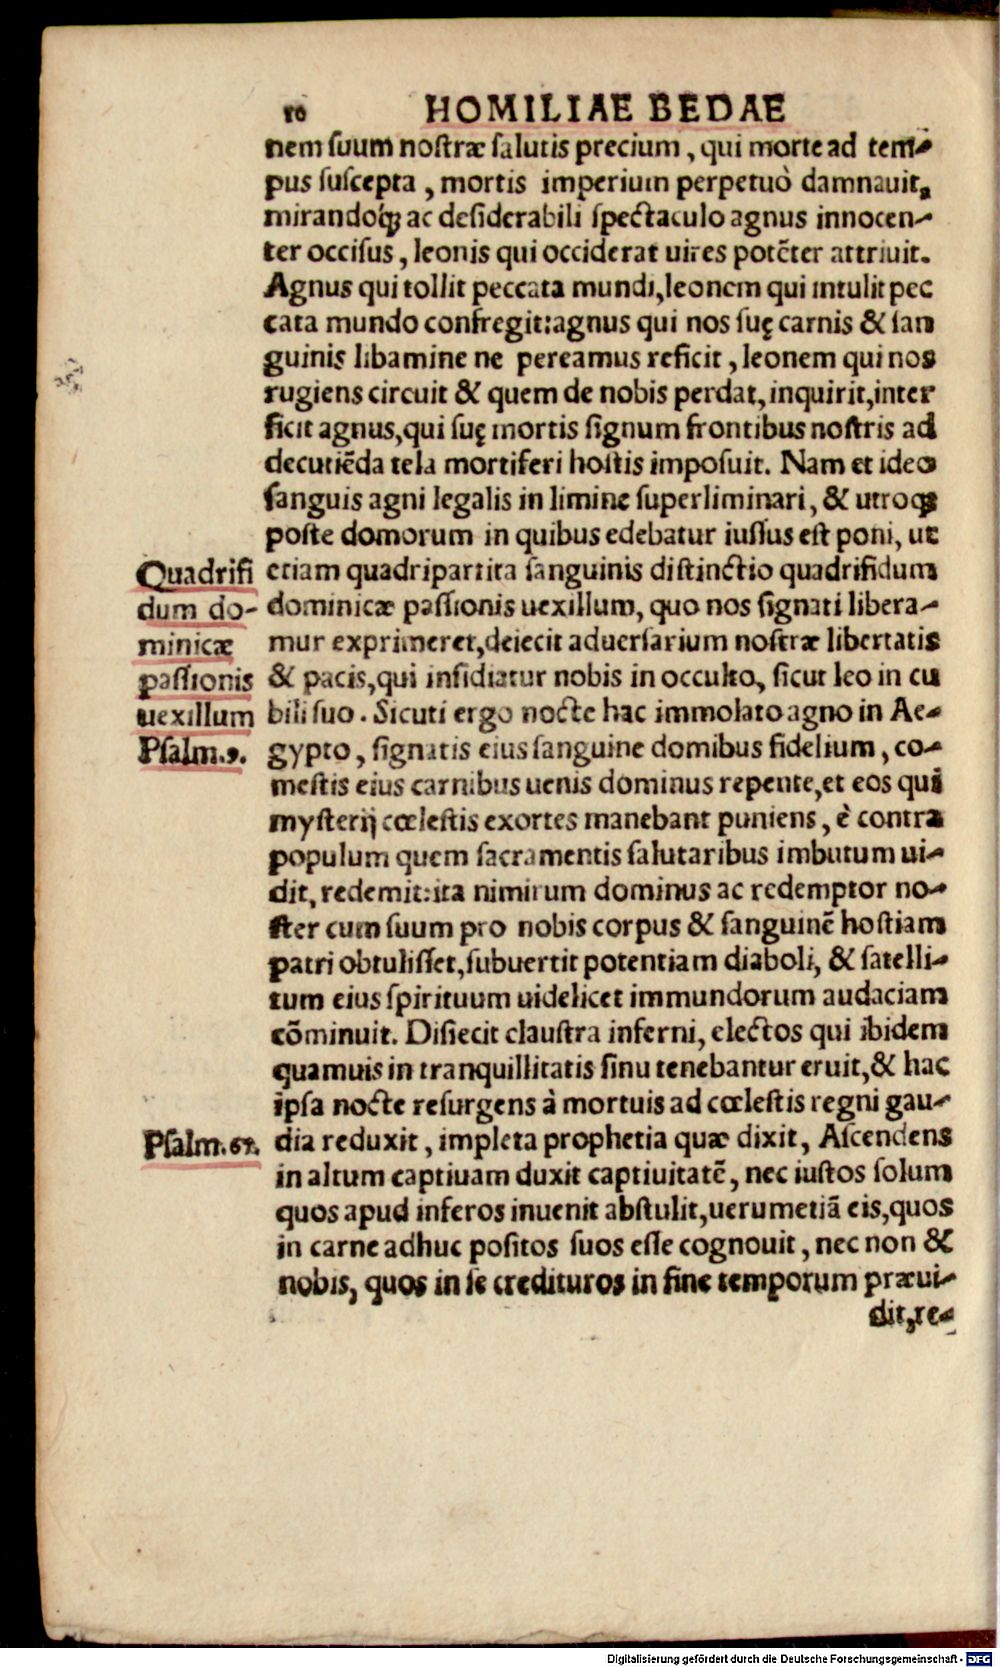 10 HOMILIAE BEDAE
nem suum nostræ salutis precium, qui morte ad tem-
pus suscepta, mortis imperium perpetuò damnauit,
mirandoq́; ac desiderabili spectaculo agnus innocen-
ter occisus, leonis qui occiderat uires potẽter attriuit.
Agnus qui tollit peccata mundi, leonem qui intulit pec
cata mundo confregit: agnus qui nos suę carnis & san
guinis libamine ne pereamus reficit, leonem qui nos
rugiens circuit & quem de nobis perdat, inquirit, inter
ficit agnus, qui suę mortis signum frontibus nostris ad
decutiẽda tela mortiferi hostis imposuit. Nam et ideo
sanguis agni legalis in limine superliminari, & utroq;
poste domorum in quibus edebatur iussus est poni, ut
etiam quadripartita sanguinis distinctio quadrifidum
dominicæ passionis uexillum, quo nos signati libera-
mur exprimeret, deiecit aduersarium nostræ libertatis
& pacis, qui insidiatur nobis in occulto, sicut leo in cu
bili suo. Sicuti ergo nocte hac immolato agno in Ae-
gypto, signatis eius sanguine domibus fidelium, co-
mestis eius carnibus uenis dominus repente, et eos qui
mysterij cœlestis exortes manebant puniens, è contra
populum quem sacramentis salutaribus imbutum ui-
dit, redemit: ita nimirum dominus ac redemptor no-
ster cum suum pro nobis corpus & sanguinẽ hostiam
patri obtulisset, subuertit potentiam diaboli, & satelli-
tum eius spirituum uidelicet immundorum audaciam
cõminuit. Disiecit claustra inferni, electos qui ibidem
quamuis in tranquillitatis sinu tenebantur eruit, & hac
ipsa nocte resurgens à mortuis ad cœlestis regni gau-
dia reduxit, impleta prophetia quæ dixit, Ascendens
in altum captiuam duxit captiuitatẽ, nec iustos solum
quos apud inferos inuenit abstulit, uerumetiã eis, quos
in carne adhuc positos suos esse cognouit, nec non &
nobis, quos in se credituros in fine temporum præui-
dit, re-
Quadrifi
dum do-
minicæ
passionis
uexillum
Psalm. 9.
Psalm. 67.
Digitalisierung gefördert durch die Deutsche Forschungsgemeinschaft - DFG